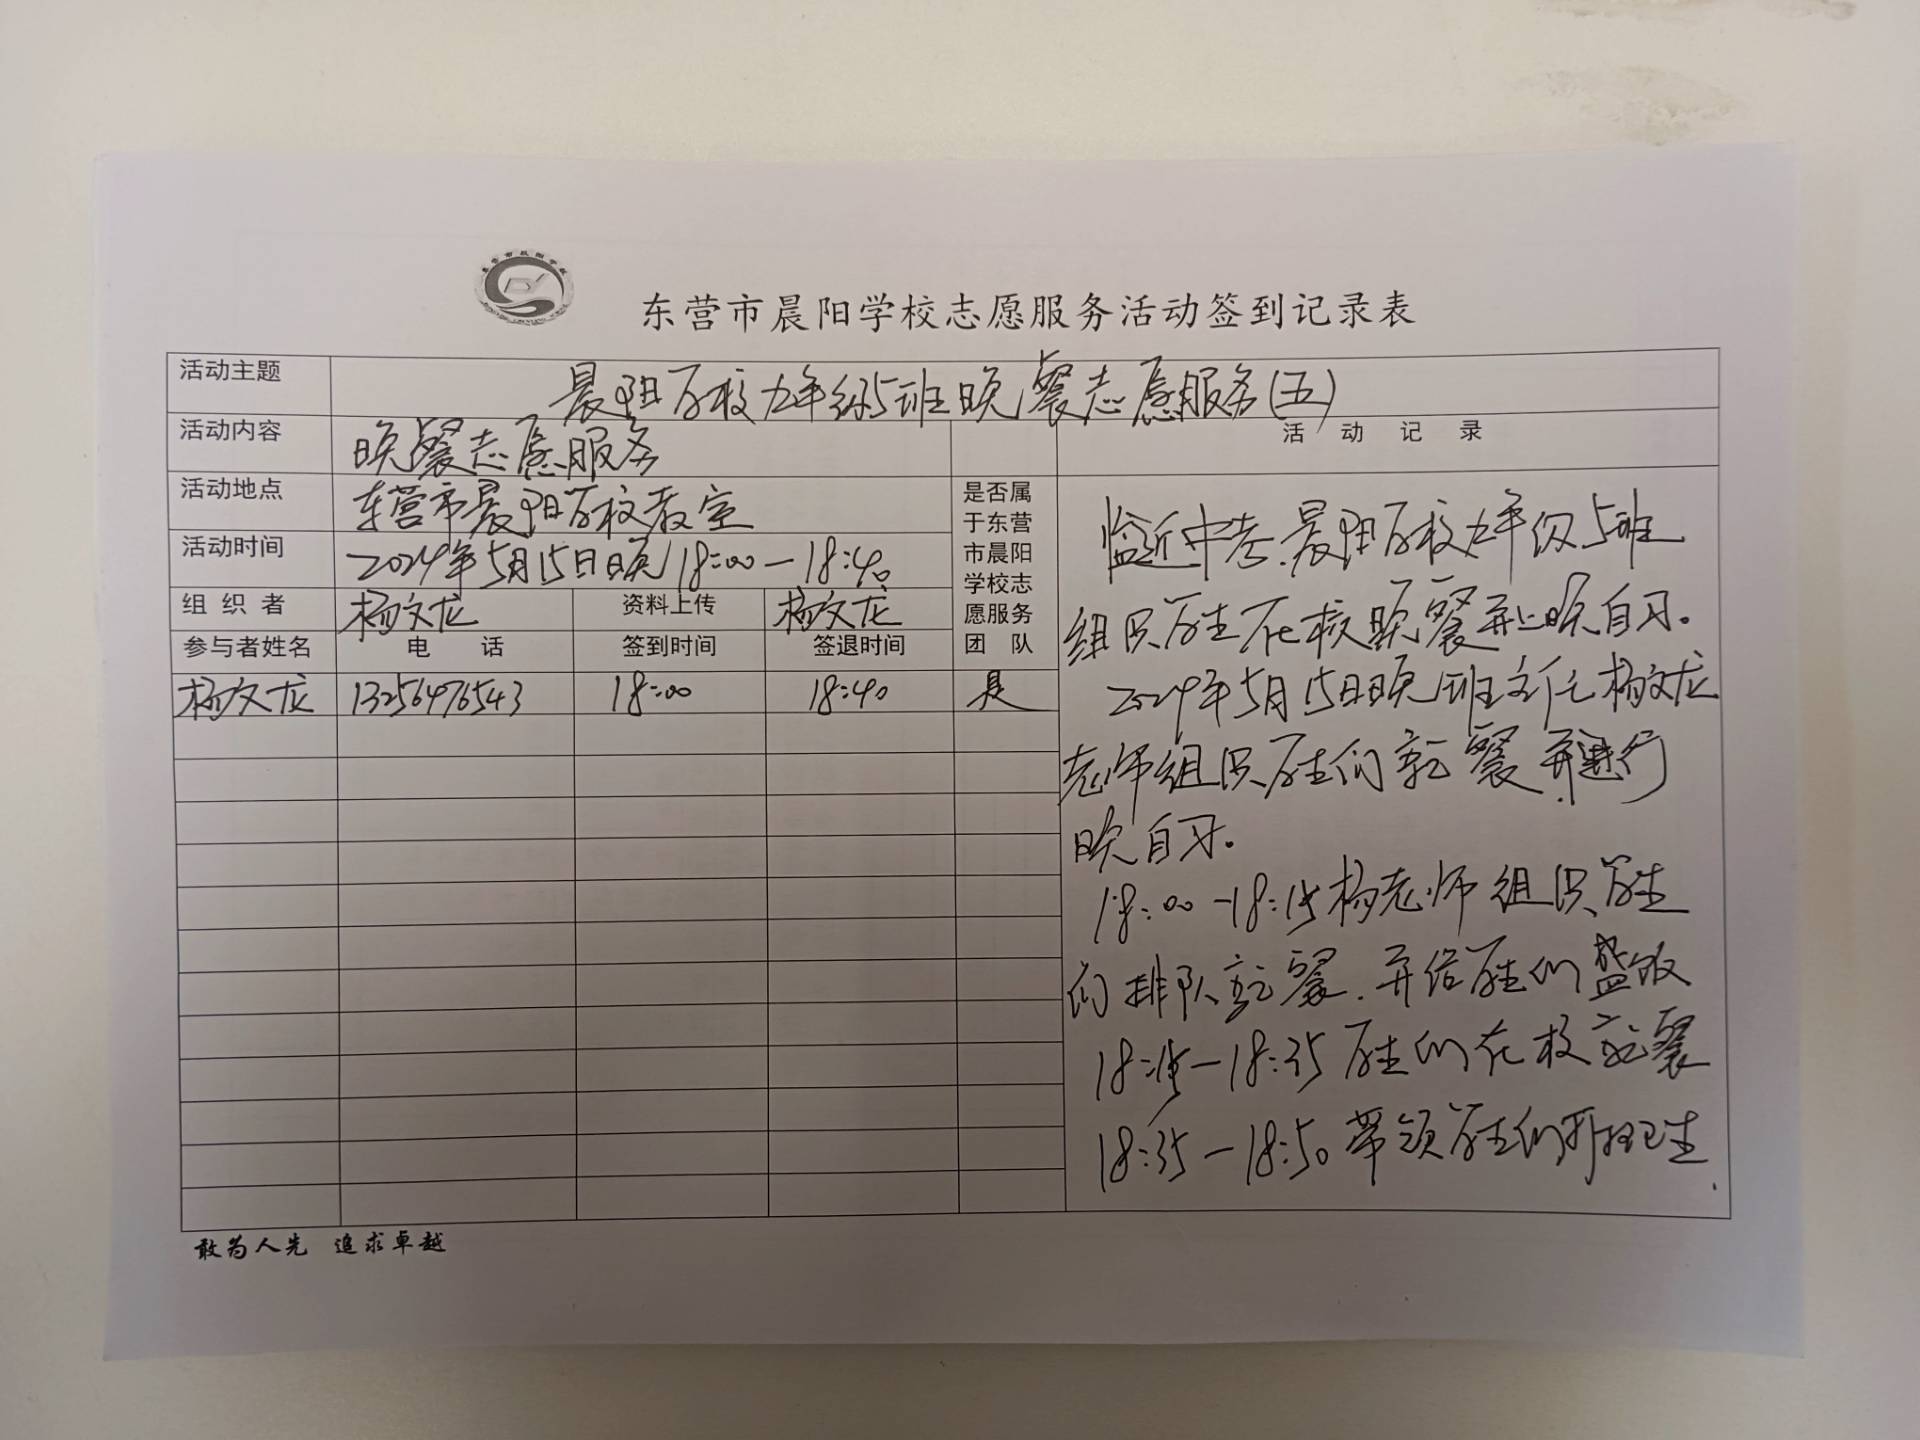 东营市晨阳学校志愿服务活动签到记录表
活动主题 晨阳学校九年级5班晚餐志愿服务(五)
活动内容 晚餐志愿服务
活动地点 东营市晨阳学校教室
活动时间 2024年5月15日晚18:00-18:40
组织者 杨文龙 资料上传 杨文龙
是否属
于东营
市晨阳
学校志
愿服务
团队
参与者姓名 电话 签到时间 签退时间
杨文龙 13256476543 18:00 18:40 是
活动记录
临近中考.晨阳学校九年级5班
组织学生在校晚餐并上晚自习。
2024年5月15日晚班主任杨文龙
老师组织学生们就餐.并进行
晚自习。
18:00-18:15杨老师组织学生
们排队就餐.并给学生们盛饭
18:15-18:35学生们在校就餐
18:35-18:50带领学生们打扫卫生.
敢为人先 追求卓越